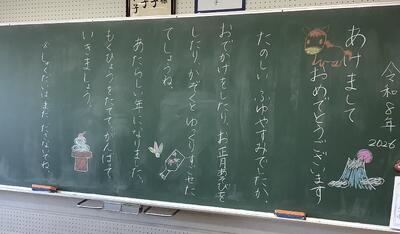 令和8年
2026
あけまして
おめでとうございます
たのしいふゆやすみでしたか。
おでかけをしたり、お正月あそびを
したり、かぞくとゆっくりすごせた
でしょうね。
あたらしい年になりました。
もくひょうをたてて、がんばって
いきましょう。
※しゅくだいはまだださないでね。